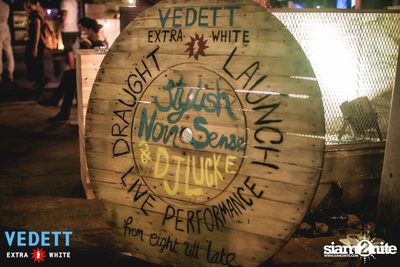 VEDETT
EXTRA WHITE
DRAUGHT LAUNCH
Stylish
Non Sense
& DJ LUCKE
LIVE PERFORMANCE
from eight till late
VEDETT
EXTRA WHITE
siam2nite
WWW.SIAM2NITE.COM